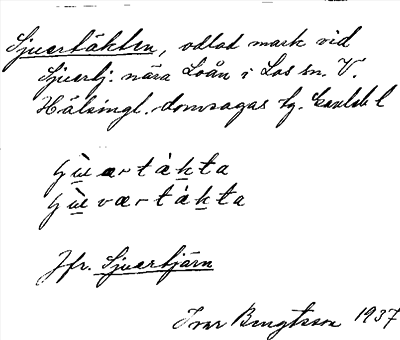 Sjuertäkten, odlad mark vid
Sjuerbj. nära Loån i Los sn. V.
Hälsingl. domsagas tg. Gävleb l
ʃɥ̀ærtákta
ʃɥ̀værtákta
Jfr. Sjuerbjärn
Ivar Bengtsson 1937